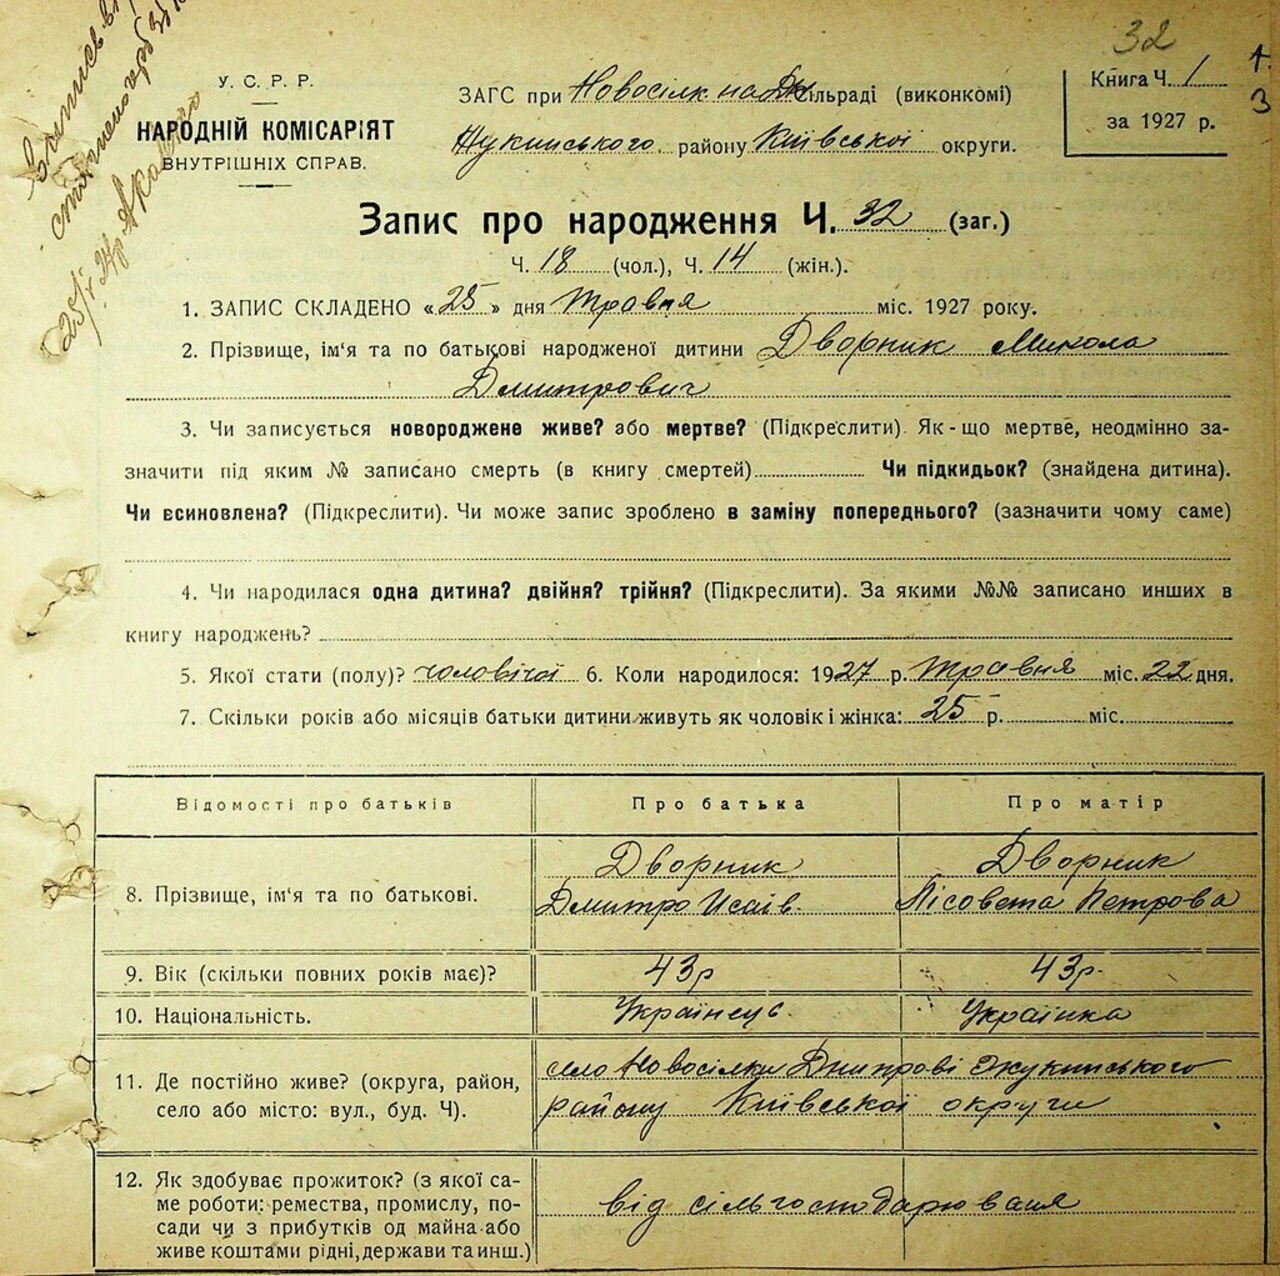 32
У. С. Р. Р.
НАРОДНІЙ КОМІСАРІЯТ
ВНУТРІШНІХ СПРАВ.
ЗАГС при Новосілк на Дн Сільраді (виконкомі)
району Київської округи.
Книга Ч. 1
за 1927 р.
Запис про народження Ч. 32 (заг.)
Ч. 18 (чол.), Ч. 14 (жін.).
1. ЗАПИС СКЛАДЕНО «25» дня травня міс. 1927 року.
2. Прізвище, ім'я та по батькові народженої дитини Дворник Микола
Дмитрович
3. Чи записується новороджене живе? або мертве? (Підкреслити). Як-що мертве, неодмінно за-
значити під яким № записано смерть (в книгу смертей) Чи підкидьок? (знайдена дитина).
Чи всиновлена? (Підкреслити). Чи може запис зроблено в заміну попереднього? (зазначити чому саме)
4. Чи народилася одна дитина? двійня? трійня? (Підкреслити). За якими №№ записано инших в
книгу народжень?
5. Якої стати (полу)? чоловічої 6. Коли народилося: 1927 р. травня міс. 22 дня.
7. Скільки років або місяців батьки дитини живуть як чоловік і жінка: 25 р. міс.
Відомості про батьків Про батька Про матір
8. Прізвище, ім'я та по батькові. Дворник Дворник
Дмитро Исаїв. Лісовета Петрова
9. Вік (скільки повних років має)? 43р 43р.
10. Національність. Українець. Українка
11. Де постійно живе? (округа, район, село Новосілки Дніпрові Жукинського
село або місто: вул., буд. Ч). району Київської округи
12. Як здобуває прожиток? (з якої са-
ме роботи: ремества, промислу, по- від сільгосподарювання
сади чи з прибутків од майна або
живе коштами рідні, держави та инш.)